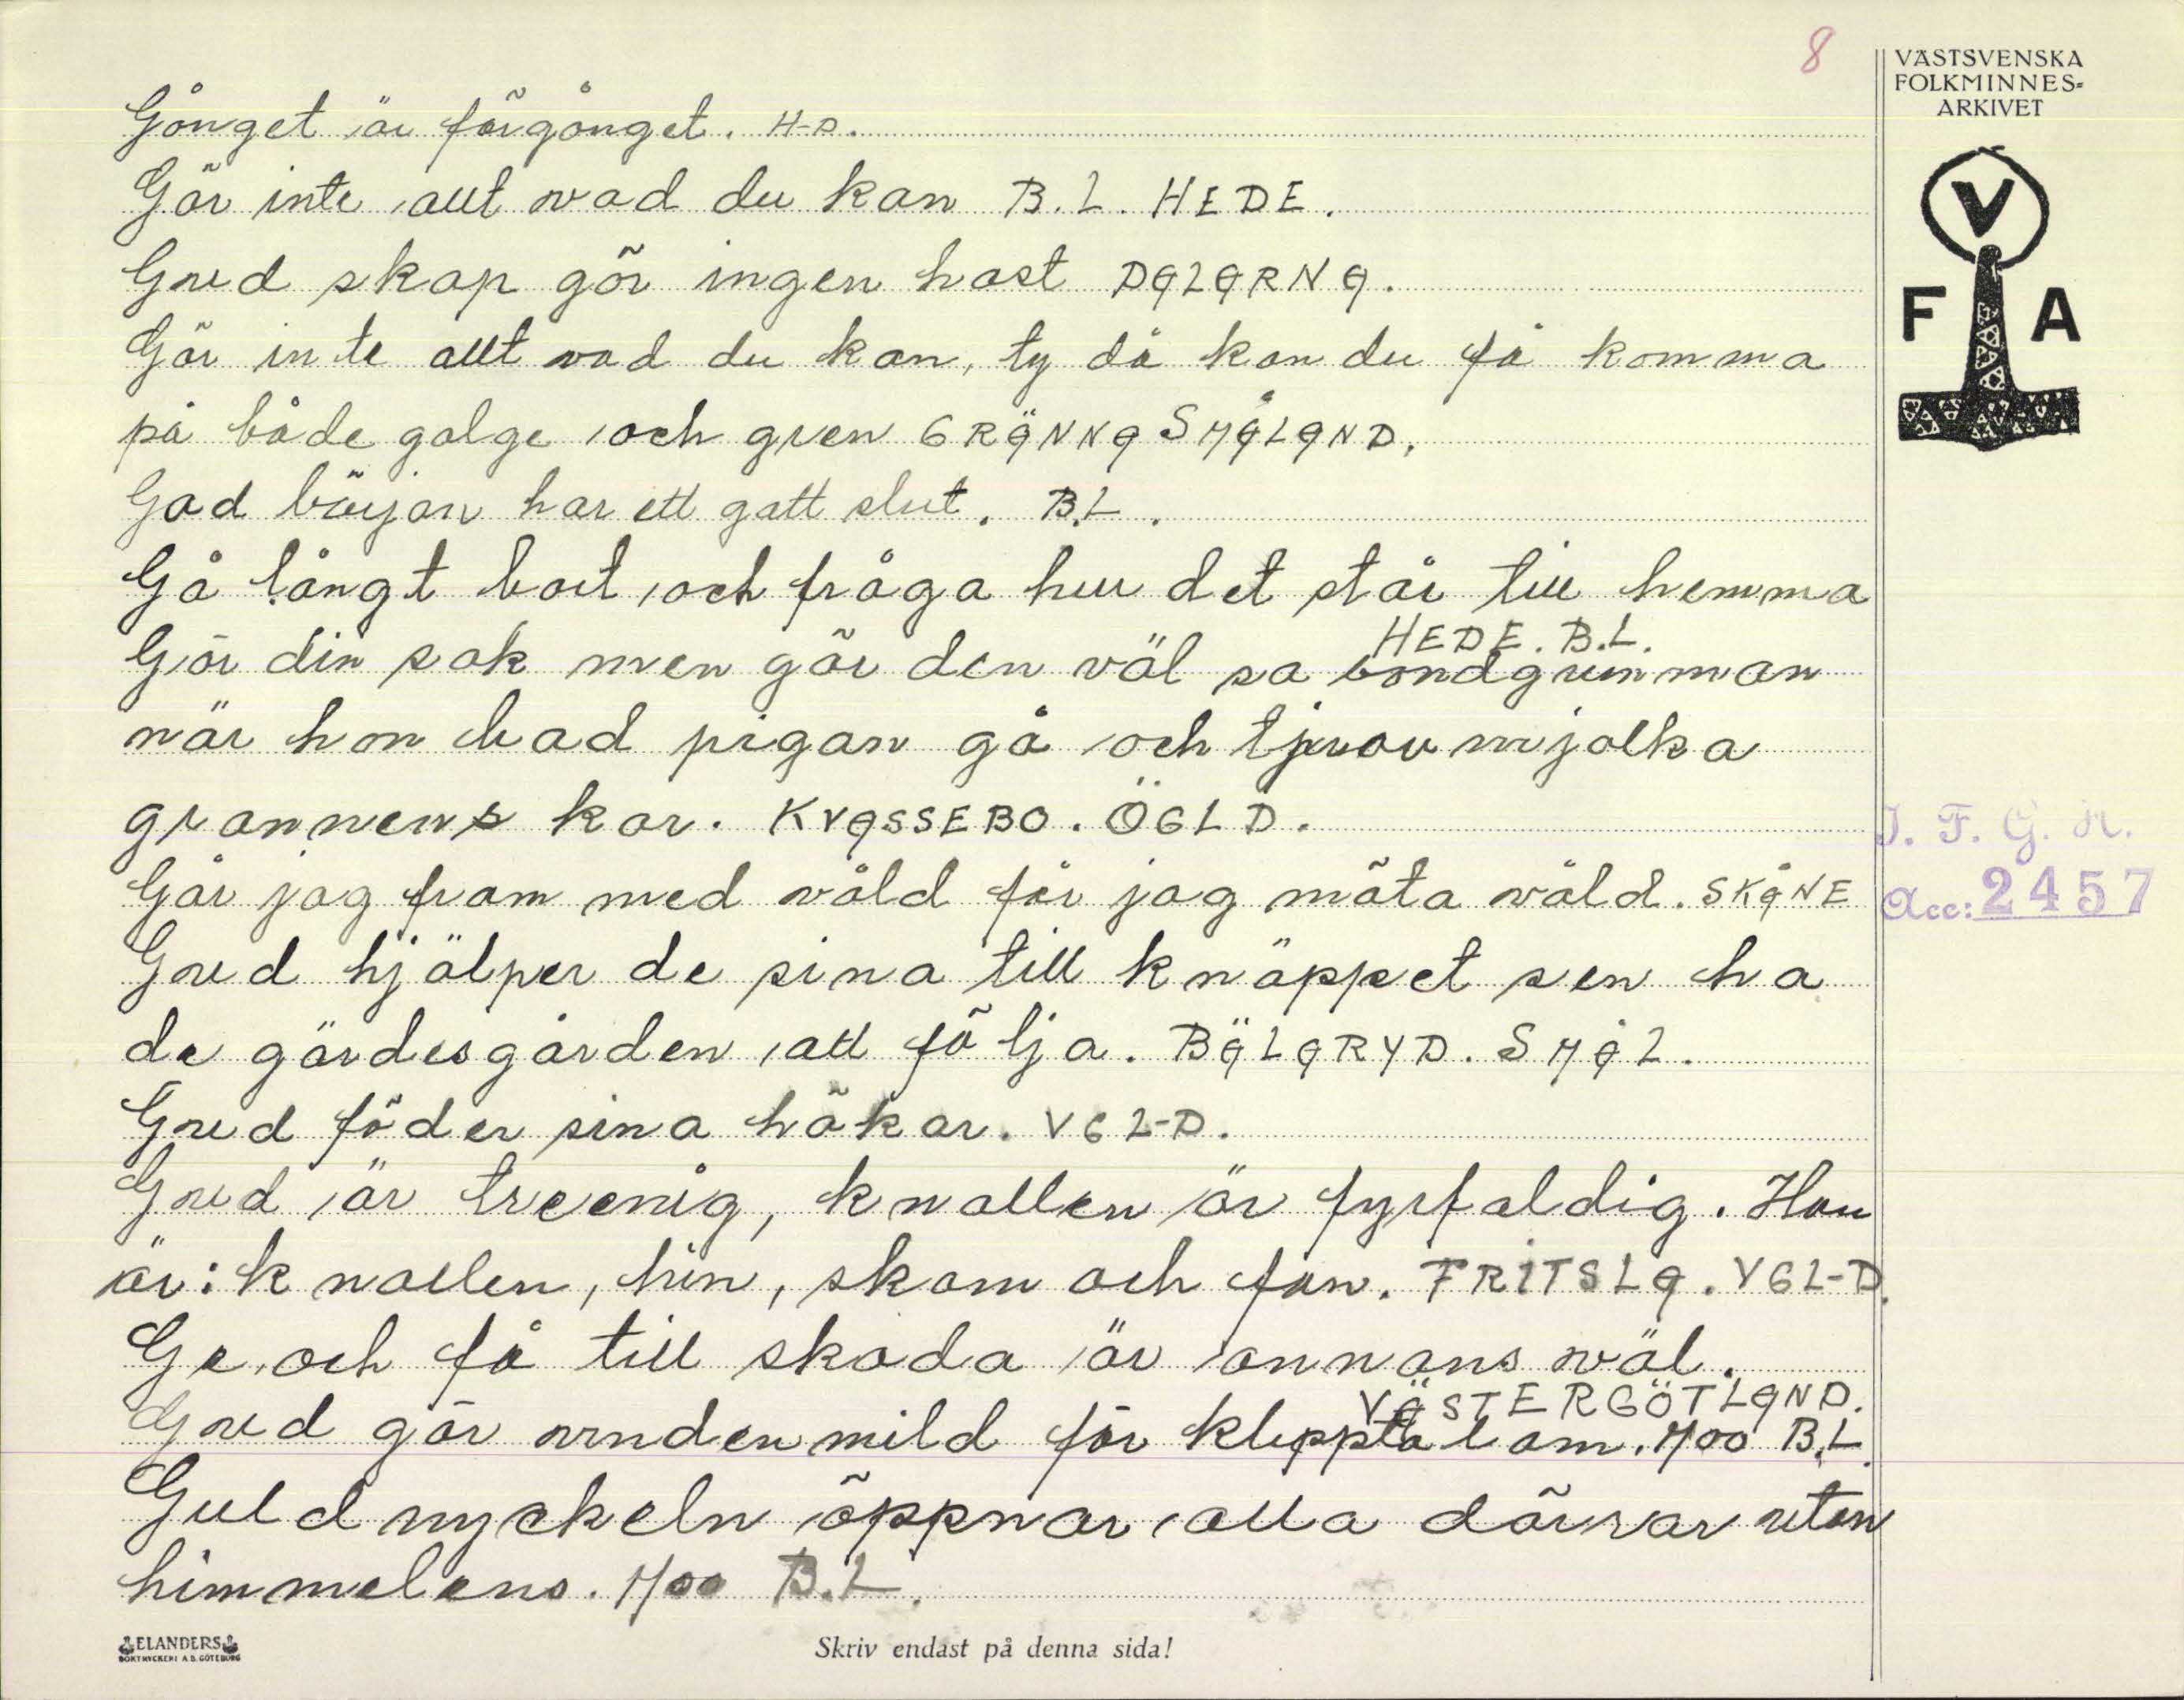 8
VÄSTSVENSKA
FOLKMINNES=
ARKIVET
V
F A
Gånget är förgånget. H-D.
Gör inte allt vad du kan B.L. HEDE.
Gud skap gör ingen hast DALARNA.
Gör inte allt vad du kan, ty då kan du få komma
på både galge och gren GRÄNNA SMÅLAND.
God början har ett gott slut. B.L.
Gå långt bort och fråga hur det står till hemma
HEDE. B.L.
Gör din sak men gör den väl sa bondgumman
när hon bad pigan gå och tjuvmjölka
grannens kor. KVASSEBO. ÖGLD.
Går jag fram med våld får jag möta våld. SKÅNE
Gud hjälper de sina till knäppet sen ha
de gärdesgården att följa. BÄLARYD. SMÅL.
Gud föder sina hökar. VGL-D.
Gud är treenig, knallen är fyrfaldig. Han
är: knallen, hin, skam och fan. FRITSLA. VGL-D.
Ge och få till skada är annans väl.
VÄSTERGÖTLAND.
Gud gör vinden mild för klippta lam. MOO B.L.
Guldnyckeln öppnar alla dörrar utan
himmelens. MOO B.L.
I. F. G. H.
Acc: 2457
ELANDERS
BOKTRYCKERI A.B. GÖTEBORG
Skriv endast på denna sida!